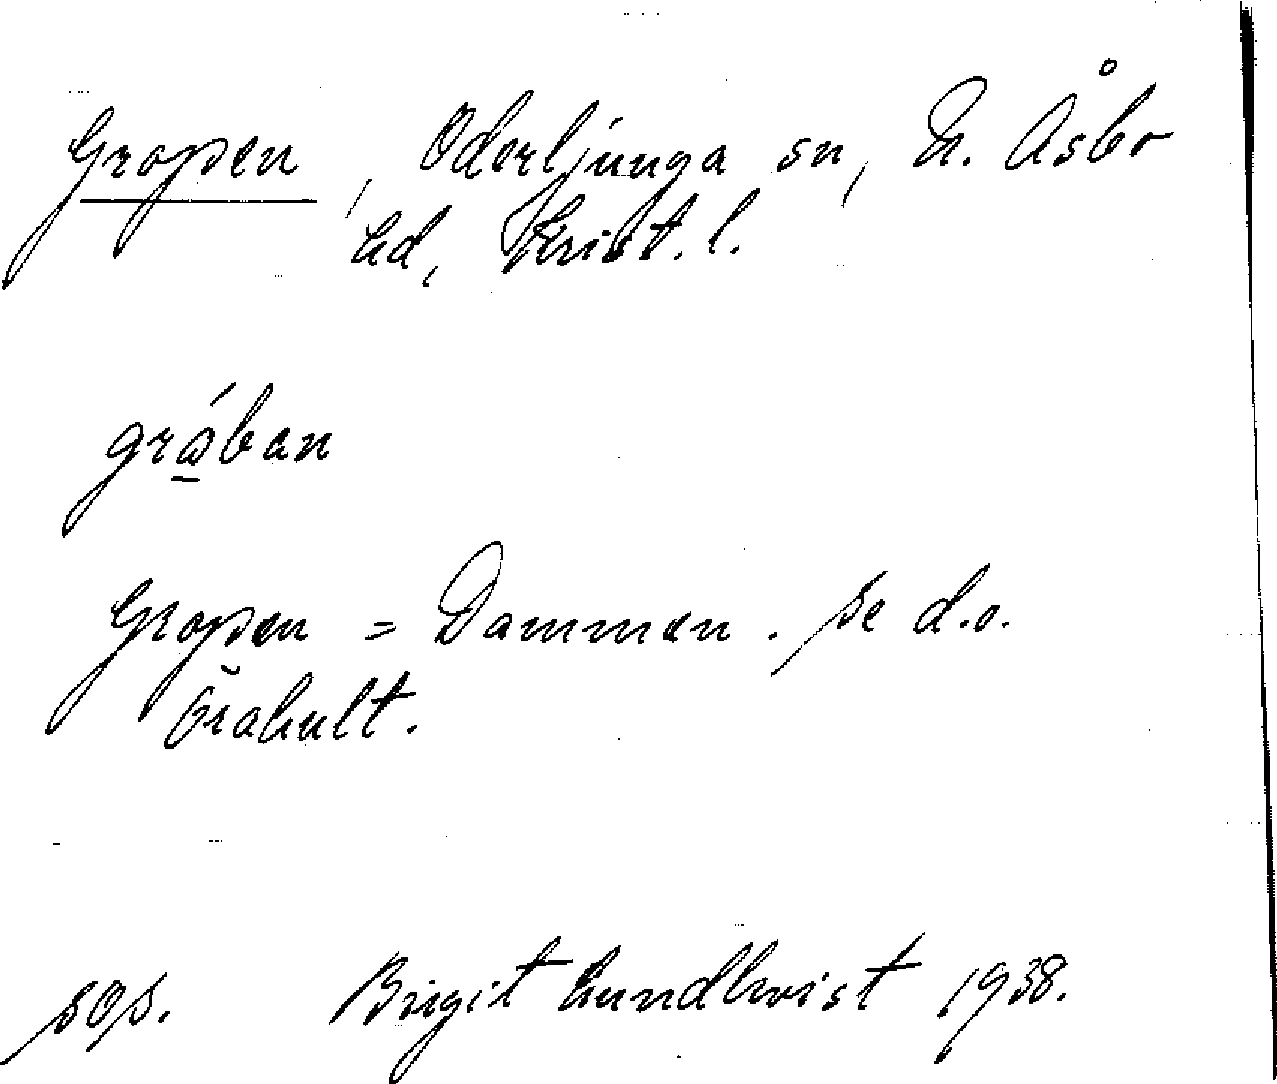 Gropen, Oderljunga sn, N. Åsbo
hd, Krist. l.
gråban
Gropen = Dammen. se d.o.
Örahult.
sop. Birgit Lundkvist 1938.